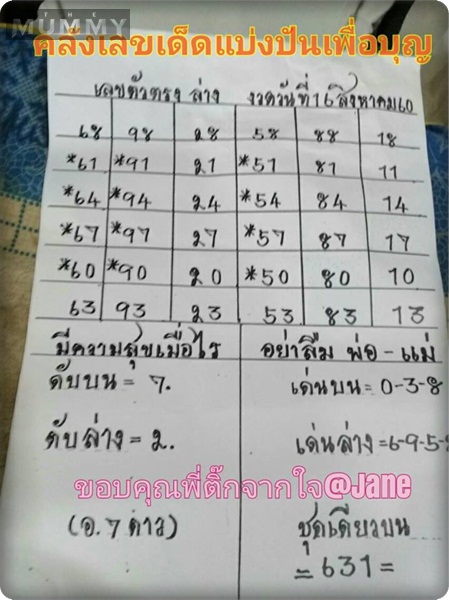 MUMMY
คลังเลขเด็ดแบ่งปันเพื่อบุญ
เลขตัวตรง ล่าง งวดวันที่ 16 สิงหาคม 60
68 98 28 58 88 18
*61 *91 21 *51 81 11
*64 *94 24 *54 84 14
*67 *97 27 *57 87 17
*60 *90 20 *50 80 10
63 93 23 53 83 13
มีความสุขเมื่อไร อย่าลืม พ่อ-แม่
ดับบน = 7. เด่นบน = 0-3-8
ดับล่าง = 2. เด่นล่าง = 6-9-5-
ขอบคุณพี่ติ๊กจากใจ@Jane
(อ. 7 ดาว) ชุดเดียวบน
= 631 =